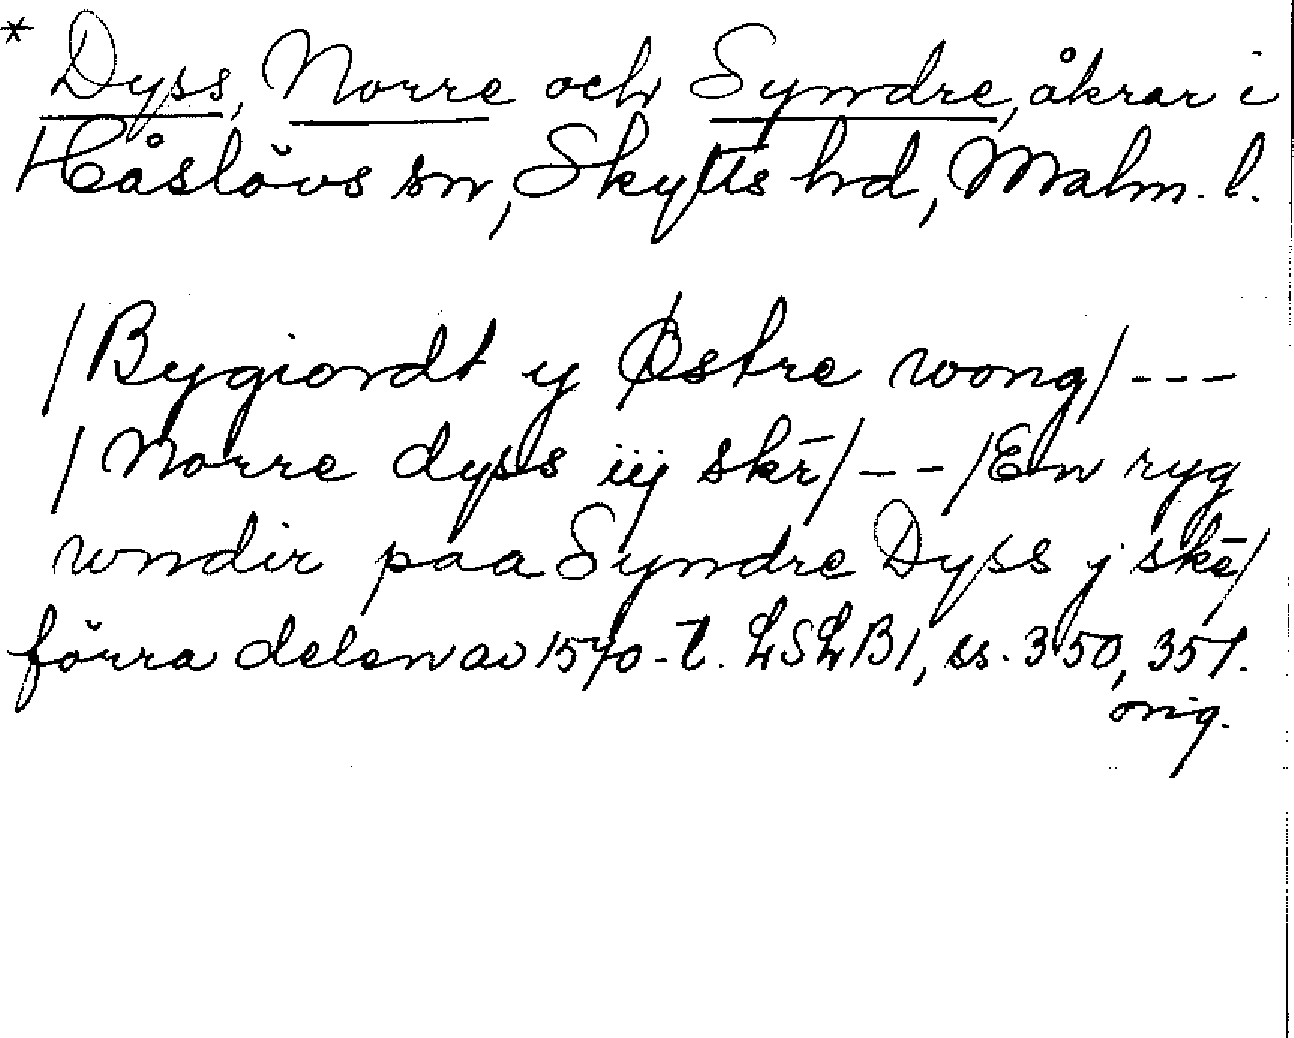 * Dyss, Norre och Syndre, åkrar i
Håslövs sn, Skytts hd, Malm. l.
/Bygiordt y Østre wong/---
/Norre dyss iij skr̄/---/En ryg
wndir paa Syndre Dyss j skē/
förra delen av 1570-t. LSLB1, ss. 350, 351.
orig.